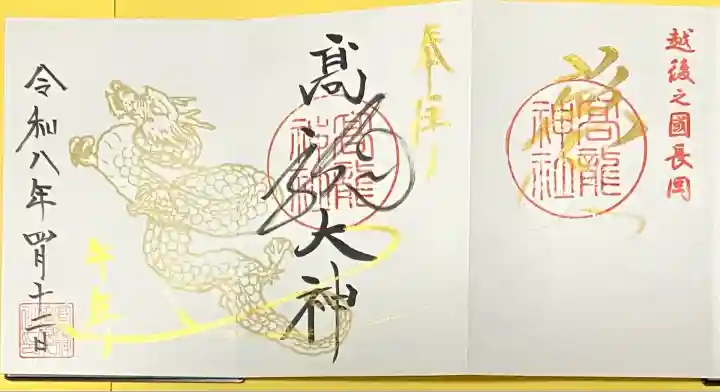 越後之國長岡
高龍神社
奉拝
髙龍大神
高龍神社
午年
令和八年四月十二日